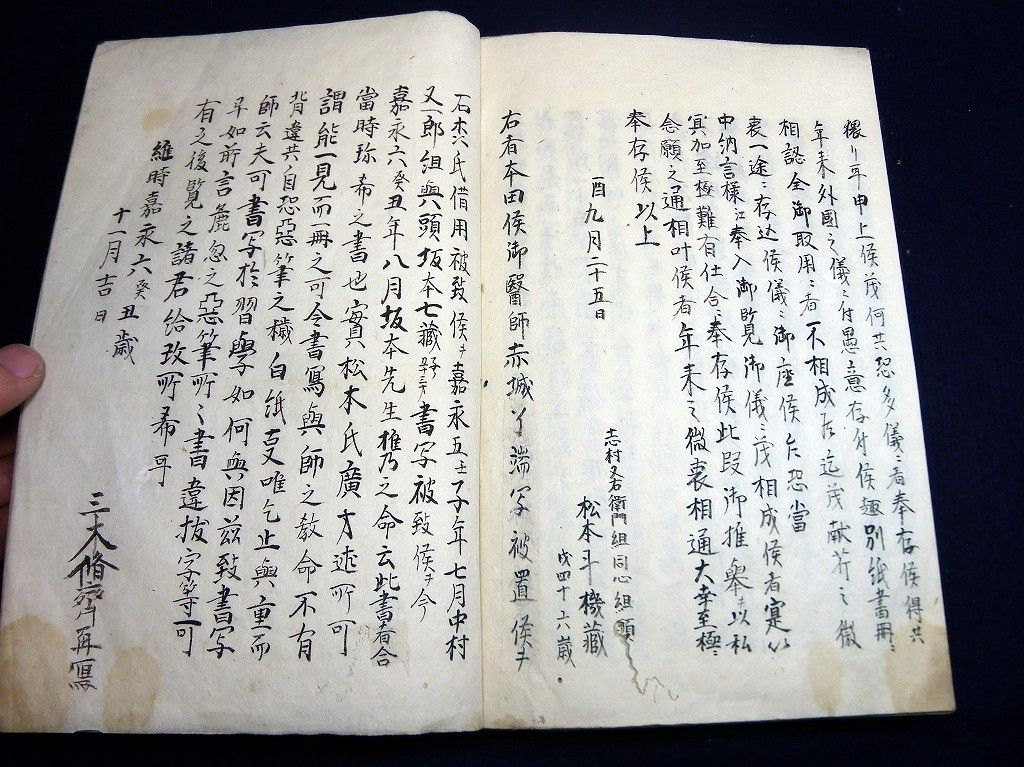 猥リ年申上候茂何共恐多儀ニ者奉存候得共
年来外国之儀ニ付愚意存付候趣別紙書冊ニ
相認全御取用ニ者不相成候迄茂献芹之微
衷一途ニ存込候儀ニ御座候乍恐當
中納言様江奉入御覧御儀ニ茂相成候者寔以
冥加至極難有仕合ニ奉存候此段御推挙ヲ以私
念願之通相叶候者年来之微衷相通大幸至極ニ
奉存候以上
酉九月二十五日
志村又右衛門組同心組頭
松本斗機蔵
戌四十六歳
右者本田侯御醫師赤城
石
氏借用被致候ヲ嘉永五壬子年七月中村
又一郎組與頭坂本七藏
書写被致候ヲ今
嘉永六癸丑年八月坂本先生
之命云此書者合
當時珍希之書也實松本氏廣才述所可
謂能一見而一冊之可令書寫與師之教命不有
背違共自恐惡筆之穢白紙
唯乞止與重而
師云夫可書写於習學如何與因茲致書写
早如前言麁忽之惡筆所々書違拔字等可
有之後覧之諸君給改所希耳
維時嘉永六癸丑歳
十一月吉日
三木脩齊再寫